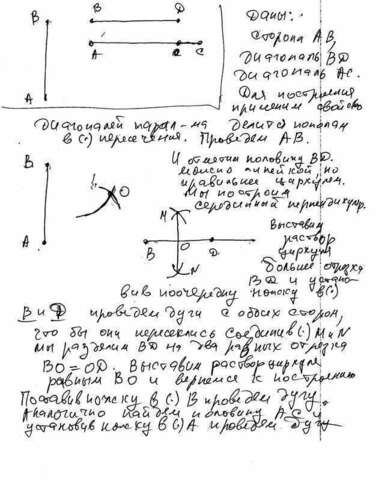 В
В D
Даны:
сторона АВ,
A C C
диагональ BD
А
диагональ АС.
Для построения
применим свойство
диагоналей парал-ма делится пополам
в (·) пересечения. Проведем АВ.
В
И отметим половину BD.
можно линейкой, но
правильнее циркулем.
Мы построим
серединный перпендикуляр.
О
А
M
B O D
N
Выставим
раствор
циркуля
больше отрезка
BD и устано-
вив поочередно ножку в (·)
В и D проведем дуги с обоих сторон,
что бы они пересеклись соединив (·) M и N
мы разделим BD на два равных отрезка
BO = OD. Выставим раствор циркуля
равным BO и вернемся к построению
Поставив ножку в (·) В проведем дугу.
Аналогично найдем половину АС и
установив ножку в (·) А проведем дугу